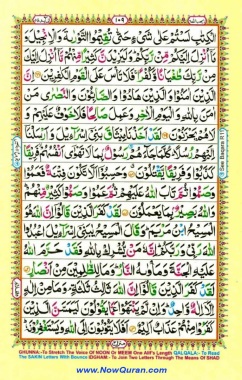 ١٠٩
الْكِتٰبِ لَسْتُمْ عَلٰى شَیْءٍ حَتّٰى تُقِیْمُوا التَّوْرٰىةَ وَالْاِنْجِیْلَ وَ
مَاۤ اُنْزِلَ اِلَیْكُمْ مِّنْ رَّبِّكُمْ وَلَیَزِیْدَنَّ كَثِیْرًا مِّنْهُمْ مَّاۤ اُنْزِلَ اِلَیْكَ
مِنْ رَّبِّكَ طُغْیَانًا وَّكُفْرًا فَلَا تَاْسَ عَلَى الْقَوْمِ الْكٰفِرِیْنَ اِنَّ
الَّذِیْنَ اٰمَنُوْا وَالَّذِیْنَ هَادُوْا وَالصّٰبِـُٔوْنَ وَالنَّصٰرٰى مَنْ
اٰمَنَ بِاللّٰهِ وَالْیَوْمِ الْاٰخِرِ وَعَمِلَ صَالِحًا فَلَا خَوْفٌ عَلَیْهِمْ وَ
لَا هُمْ یَحْزَنُوْنَ لَقَدْ اَخَذْنَا مِیْثَاقَ بَنِیْۤ اِسْرَآءِیْلَ وَاَرْسَلْنَاۤ
اِلَیْهِمْ رُسُلًا كُلَّمَا جَآءَهُمْ رَسُوْلٌۢ بِمَا لَا تَهْوٰۤى اَنْفُسُهُمْ فَرِیْقًا
كَذَّبُوْا وَفَرِیْقًا یَّقْتُلُوْنَ وَحَسِبُوْۤا اَلَّا تَكُوْنَ فِتْنَةٌ فَعَمُوْا
وَصَمُّوْا ثُمَّ تَابَ اللّٰهُ عَلَیْهِمْ ثُمَّ عَمُوْا وَصَمُّوْا كَثِیْرٌ مِّنْهُمْ
وَاللّٰهُ بَصِیْرٌۢ بِمَا یَعْمَلُوْنَ لَقَدْ كَفَرَ الَّذِیْنَ قَالُوْۤا اِنَّ اللّٰهَ
هُوَ الْمَسِیْحُ ابْنُ مَرْیَمَ وَقَالَ الْمَسِیْحُ یٰبَنِیْۤ اِسْرَآءِیْلَ اعْبُدُوا
اللّٰهَ رَبِّیْ وَرَبَّكُمْ اِنَّهٗ مَنْ یُّشْرِكْ بِاللّٰهِ فَقَدْ حَرَّمَ اللّٰهُ
عَلَیْهِ الْجَنَّةَ وَمَاْوٰىهُ النَّارُ وَمَا لِلظّٰلِمِیْنَ مِنْ اَنْصَارٍ
لَقَدْ كَفَرَ الَّذِیْنَ قَالُوْۤا اِنَّ اللّٰهَ ثَالِثُ ثَلٰثَةٍ وَمَا مِنْ اِلٰهٍ
اِلَّاۤ اِلٰهٌ وَّاحِدٌ وَاِنْ لَّمْ یَنْتَهُوْا عَمَّا یَقُوْلُوْنَ لَیَمَسَّنَّ الَّذِیْنَ
كَفَرُوْا مِنْهُمْ عَذَابٌ اَلِیْمٌ اَفَلَا یَتُوْبُوْنَ اِلَى اللّٰهِ
GHUNNA:-To Stretch The Voice OF NOON Or MEEM One Alif's Length QALQALA:- To Read
The SAKIN Letters With Bounce IDGHAM:- To Join Two Letters Through The Means Of SHAD
www.NowQuran.com